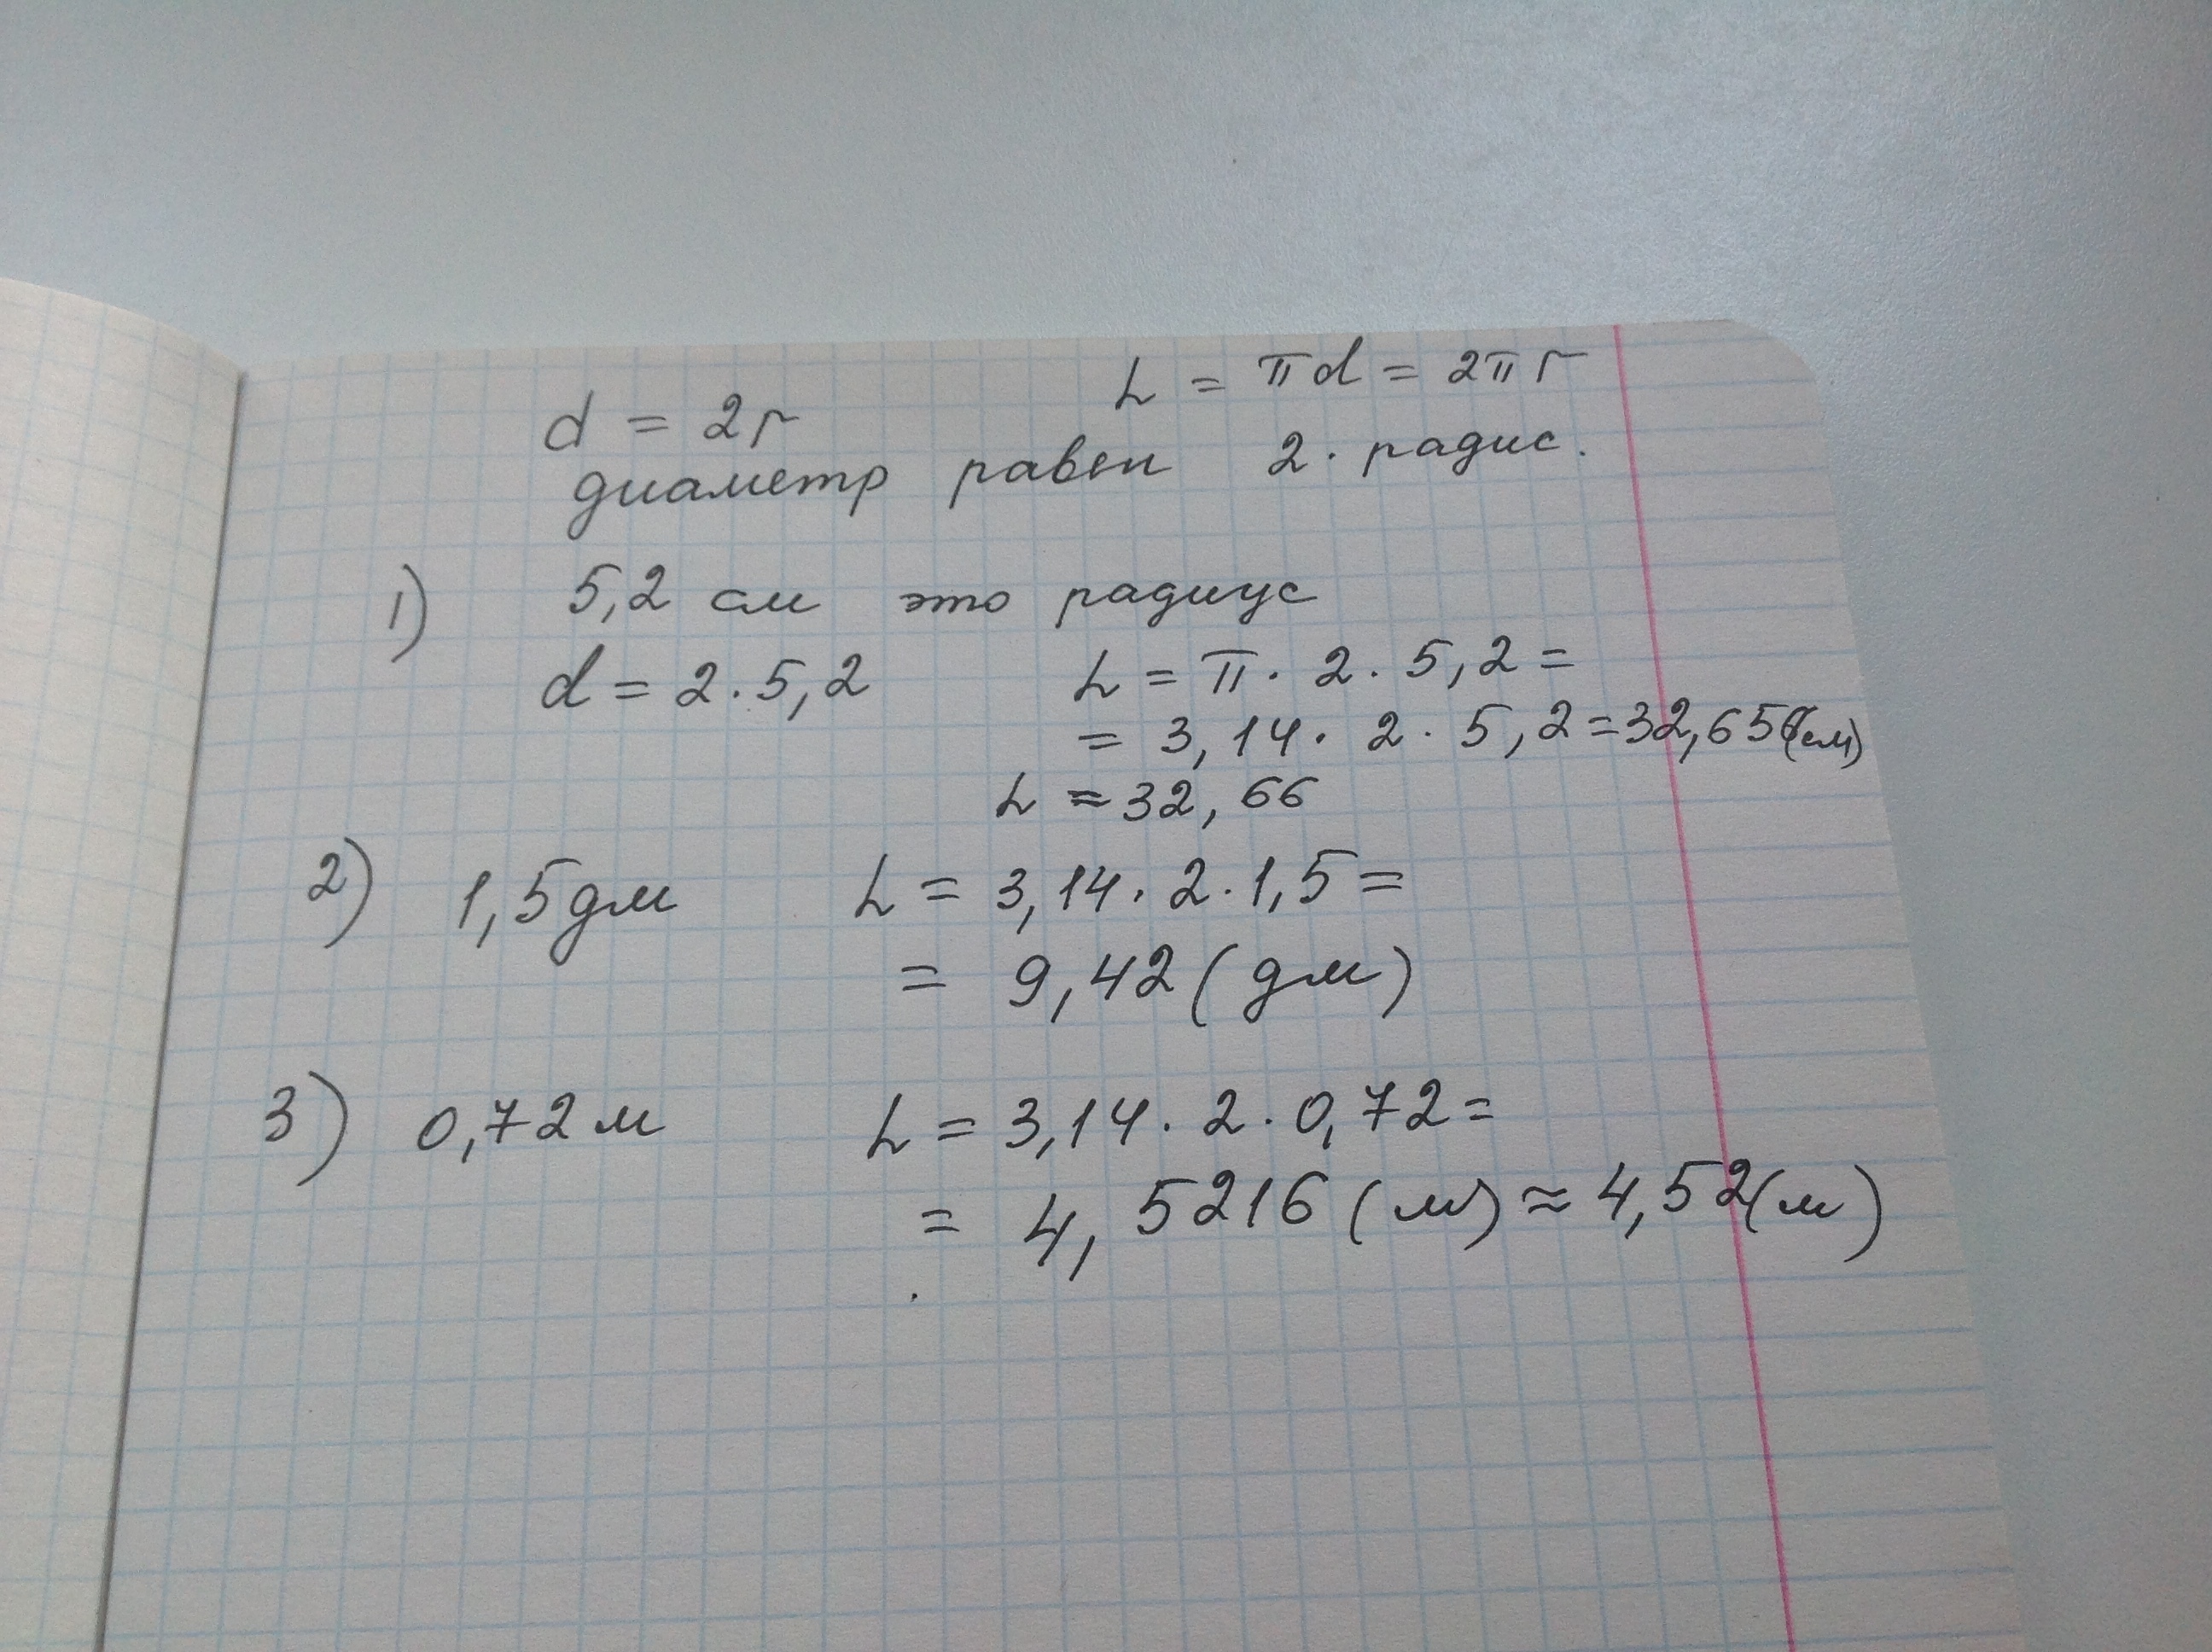 L = πd = 2πr
d = 2r
диаметр равен 2 · радис.
1) 5,2 см это радиус
d = 2 · 5,2 L = π · 2 · 5,2 =
= 3,14 · 2 · 5,2 = 32,656(см)
L ≈ 32,66
2) 1,5 дм L = 3,14 · 2 · 1,5 =
= 9,42 (дм)
3) 0,72 м L = 3,14 · 2 · 0,72 =
= 4,5216 (м) ≈ 4,52 (м)